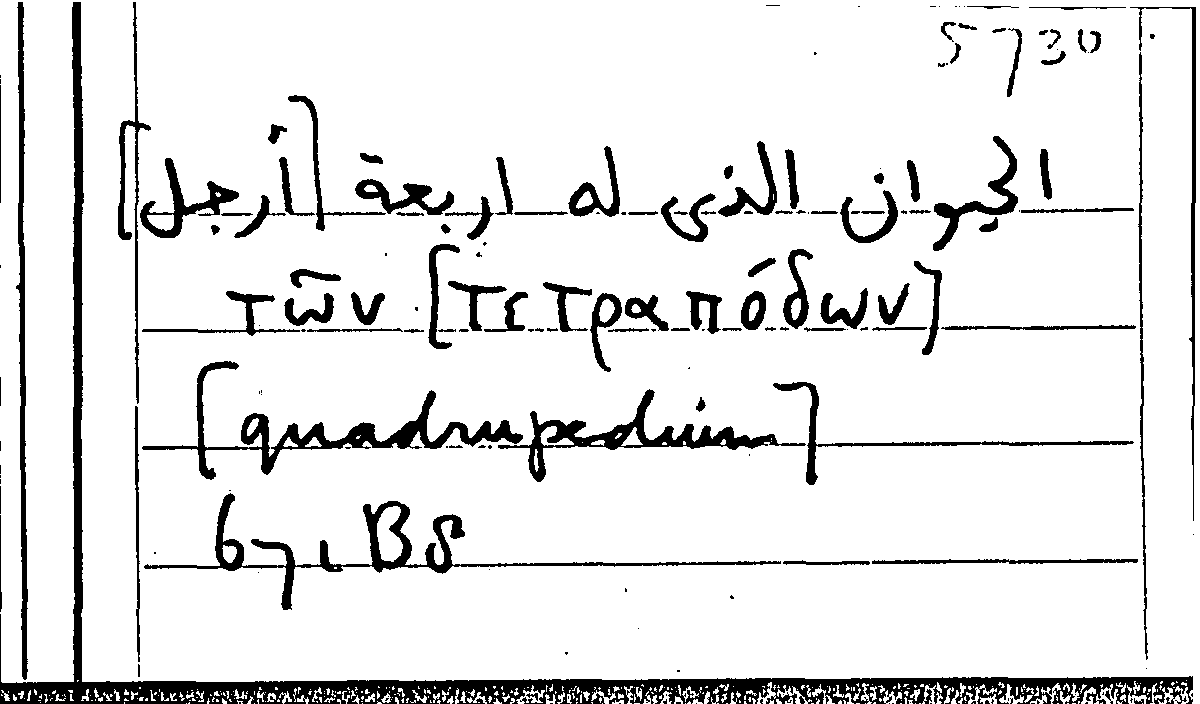 5730
الحيوان الذى له اربعة [أرجل]
τῶν [τετραπόδων]
[quadrupedium]
671 B8